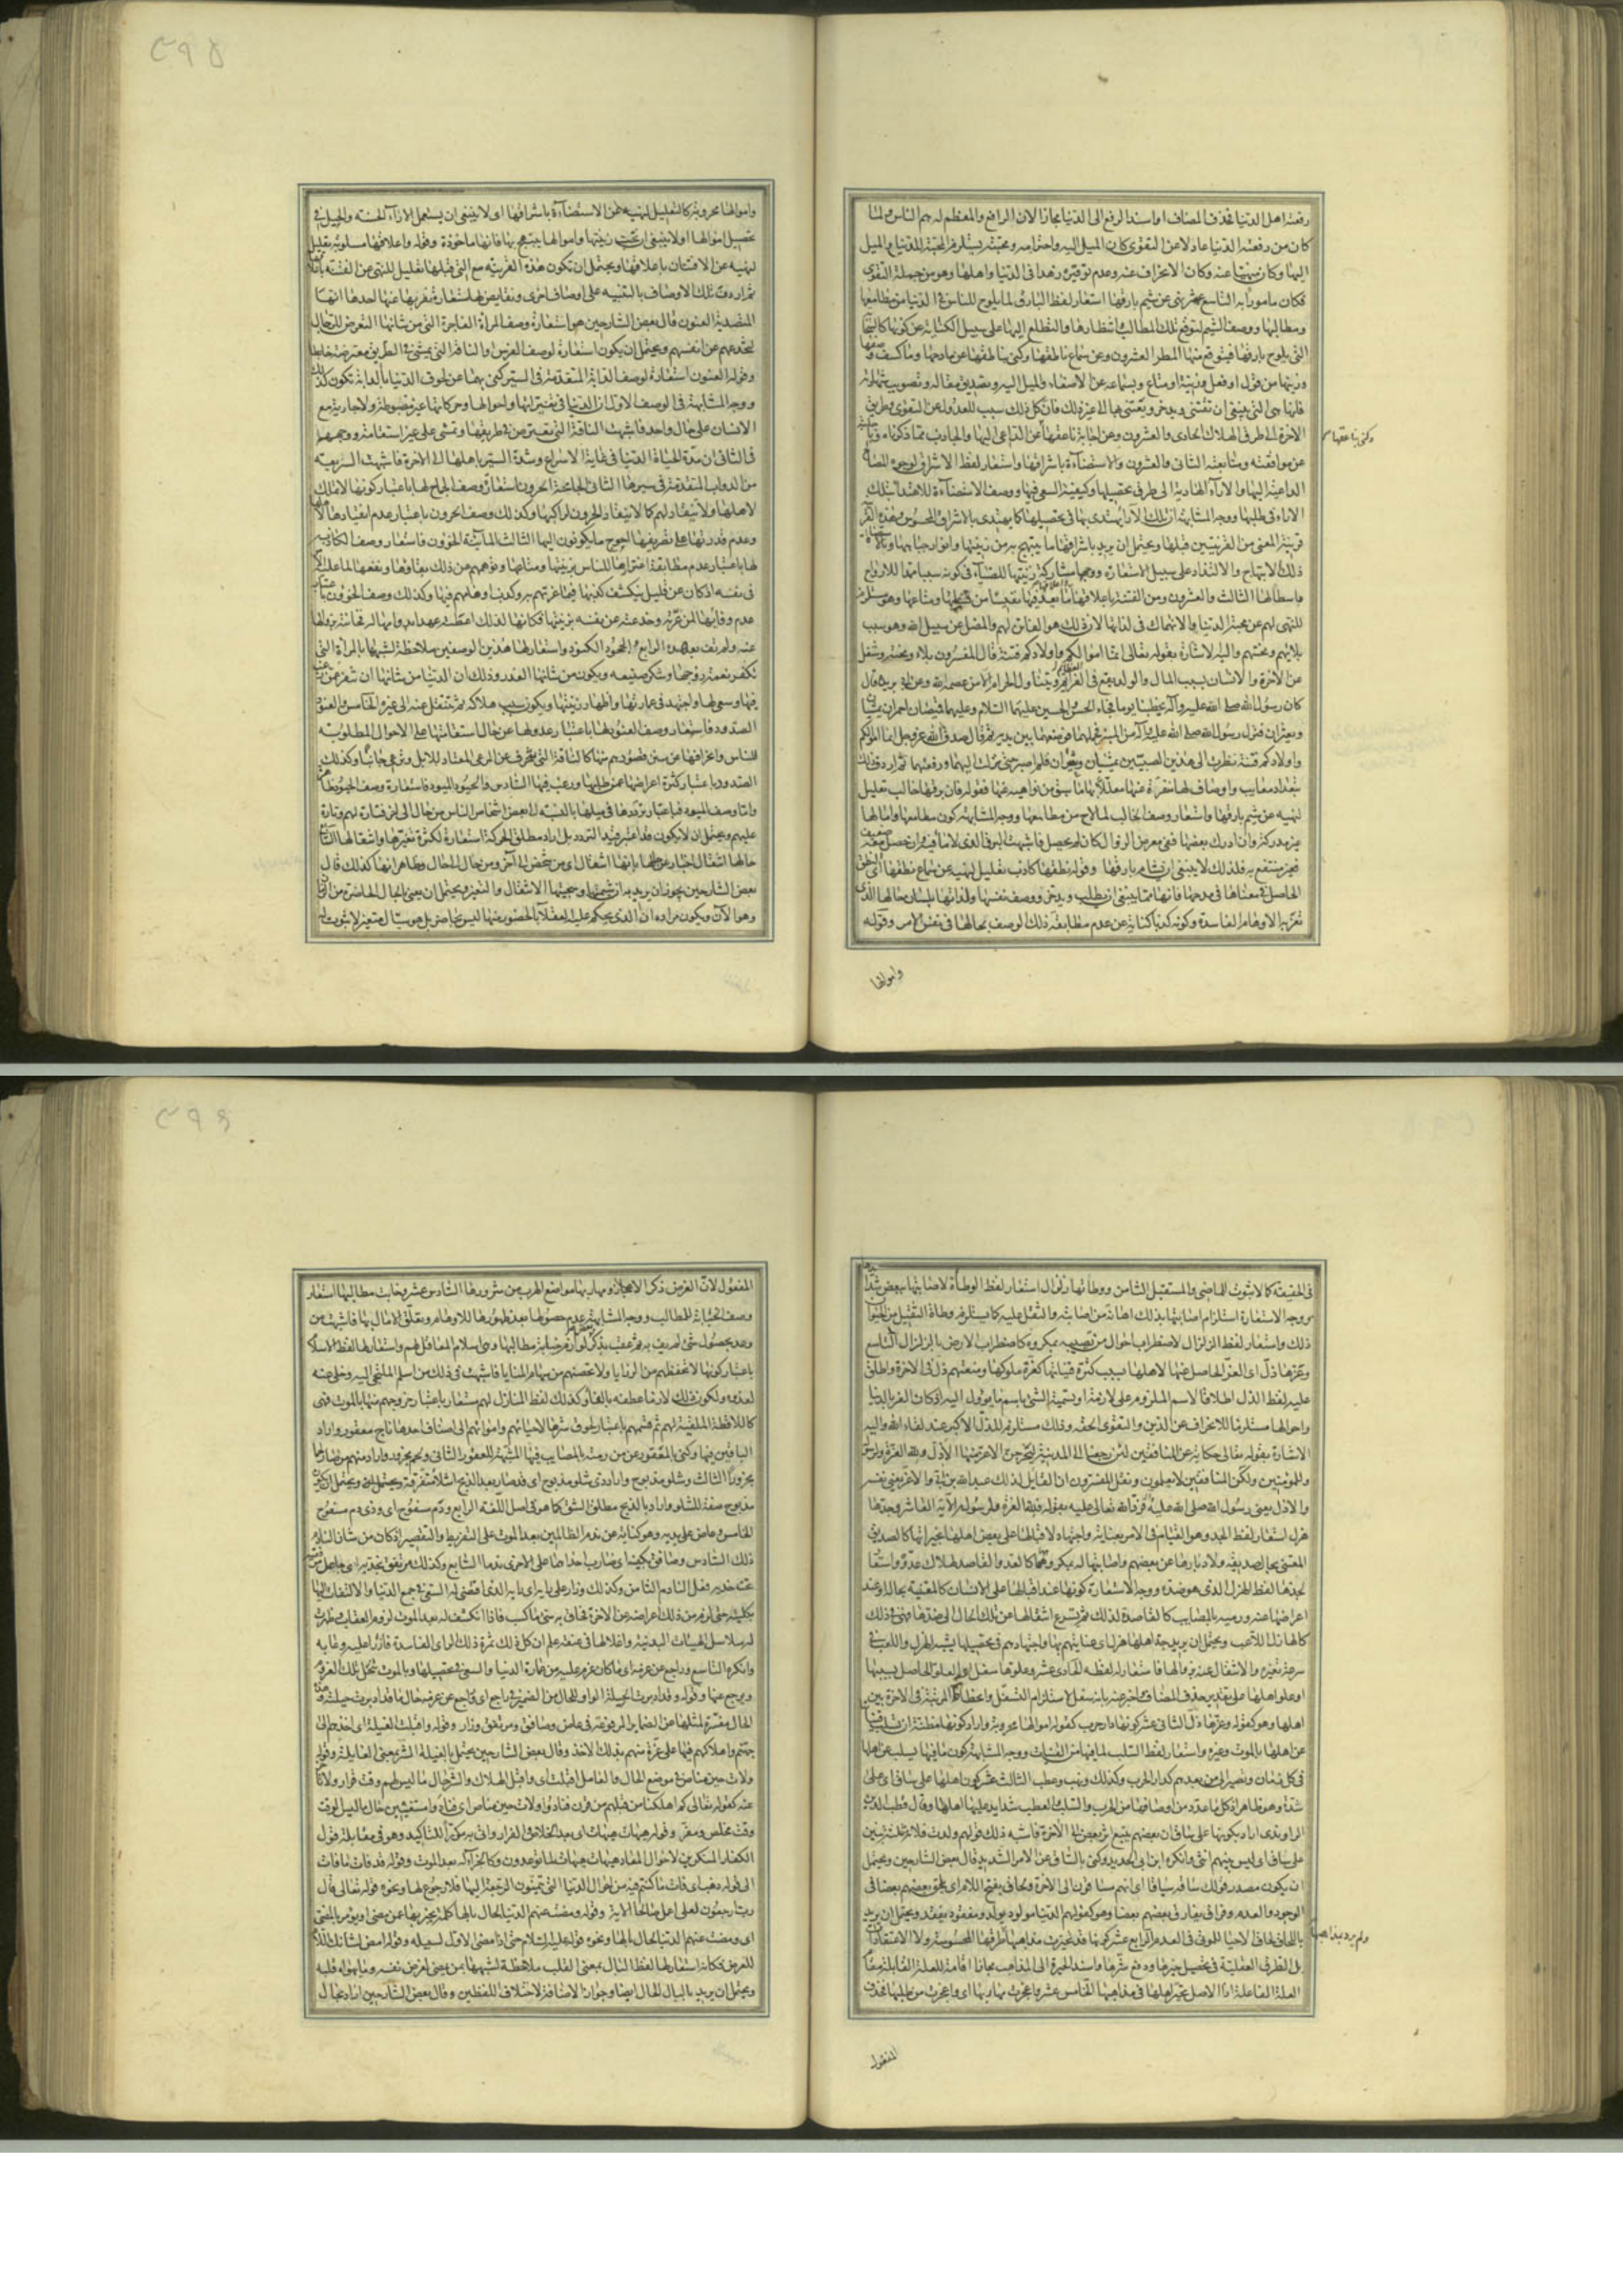 رفعته اهل الدنيا فحذف المضاف او اسند الرفع الى الدنيا مجازا لان الرافع والمعظم له هم الناس ولما
كان من رفعته الدنيا عادلا عن التقوى كان الميل اليه واحترامه ومحبته يستلزم المحبة للدنيا والميل
اليها وكان منهيا عنه وكان الانحراف عنه وعدم توقيره زهدا فى الدنيا واهلها وهو من جملة التقوى
فكان مامورا به التاسع عشر نهى عن شيم بارقها استعار لفظ البارق لما يلوح للناس فى الدنيا من مطامعها
ومطالبها ووصف الشيم لتوقع تلك المطالب وانتظارها والتطلع اليها على سبيل الكناية عن كونها كالسحابة
التى يلوح بارقها فيتوقع منها المطر العشرون وعن سماع ناطقها وكنى بناطقها عن مادحها وما كشف وصفها
وزينها من قول او فعل وزينة او متاع وبسماعه عن الاصغاء والميل اليه وتصديق مقاله وتصويب شهادته
فانها هى التى ينبغى ان تقتنى ويدخر ويعتنى بها الى غير ذلك فان كل ذلك سبب للعدول عن التقوى وطريق
الاخرة الى طرف الهلاك الحادى والعشرون وعن اجابة ناعقها عن الداعى اليها والجاذب مما ذكرناه وباجابته
وكنى بناعقها
عن موافقته ومتابعته الثانى والعشرون والاستضاءة باشراقها واستعار لفظ الاشراق لوجوه المصالح
الداعية اليها والاراء الهادية الى طرق تحصيلها وكيفية السعى فيها ووصف الاستضاءة للاهتداء بتلك
الاراء فى طلبها ووجه المشابهة ان تلك الاراء يهتدى بها فى تحصيلها كما يهتدى بالاشراق المحسوس وهذه القرينة
قريبة المعنى من القرينتين قبلها ويحتمل ان يريد باشراقها ما يبتهج به من زينتها وانوار جنابها وبالاستضاءة
ذلك الابتهاج والالتذاذ على سبيل الاستعارة ووجهها مشاركة زينتها للضياء فى كونه سببا ممدا للارواح
باسطا لها الثالث والعشرون ومن الفتنة باعلاقها
للنهى لهم عن محبة الدنيا والانهماك فى لذاتها لان ذلك هو الفاتن لهم والمضل عن سبيل الله وهو سبب
بلائهم ومحنتهم واليه الاشارة بقوله تعالى انما اموالكم واولادكم فتنة قال المفسرون بلاء ومحنة وشغل
عن الاخرة والانسان بسبب المال والولد يقع فى العظائم ويتناول الحرام الا من عصمه الله وعن ابى بريدة قال
كان رسول الله صلى الله عليه وآله يخطبنا يوما فجاء الحسن والحسين عليهما السلام وعليهما قميصان احمران يمشيان
ويعثران فنزل رسول الله صلى الله عليه وآله من المنبر فحملهما فوضعهما بين يديه ثم قال صدق الله عز وجل انما اموالكم
واولادكم فتنة نظرت الى هذين الصبيين يمشيان ويعثران فلم اصبر حتى نزلت اليهما ورفعتهما ثم اردف ذلك
بتعداد معايب واوصاف لها منفرة عنها معللا بها ما سبق من نواهيه عنها فقوله فان برقها خالب تعليل
لنهيه عن شيم بارقها واستعار وصف الخالب لما لاح من مطامعها ووجه المشابهة كون مطامعها وامالها
غير مدركة وان ادرك بعضها ففى معرض الزوال كان لم يحصل فاشبهت البرق الذى لا ماء فيه وان حصل معه ضعيف
فغير منتفع به فلذلك لا ينبغى ان يشام بارقها وقوله ونطقها كاذب تعليل لنهيه عن سماع نطقها اى النطق
الحاصل فى معناها فى مدحها فانها مما ينبغى ان يطلب ويدخر ووصف نفسها ولذاتها بلسان حالها الذى
تغر به الاوهام الفاسدة وكونه كذبا كناية عن عدم مطابقة ذلك الوصف بحالها فى نفس الامر وقوله
واموالها
واموالها محروبة كالتعليل لنهيه عن الاستضاءة باشراقها اى لا ينبغى ان يستعمل الاراء الحسنة والحيل فى
تحصيل اموالها او لا ينبغى ان تحب زينتها واموالها ويبتهج بها فانها ماخوذة وقوله واعلاقها مسلوبة تعليل
لنهيه عن الافتتان باعلاقها ويحتمل ان تكون هذه القرينة مع التى قبلها تعليل للنهى عن الفتنة باعلاقها
ثم اردف تلك الاوصاف بالتنبيه على اوصاف اخرى ونقايص لها مستعارة تنفر بها عنها احدها انها
المتصدية العنون قال بعض الشارحين هو استعارة وصف المراة الفاجرة التى من شانها التعرض للرجال
لتخدعهم عن انفسهم ويحتمل ان يكون استعارة لوصف الفرس او الناقة التى تمشى فى الطريق معترضة خابطة
وقوله العنون استعارة لوصف الدابة المتقدمة فى السير كنى بها عن لحوق الدنيا بالدابة تكون كذلك
ووجه المشابهة فى الوصف الاول ان الدنيا فى تغيراتها واحوالها وحركاتها غير مضبوطة ولا جارية مع
الانسان على حال واحد فاشبهت الناقة التى تعترض فى طريقها وتمشى على غير استقامة ووجهها
فى الثانى ان مدة الحياة الدنيا فى غاية الاسراع وشدة السير باهلها الى الاخرة فاشبهت السريعة
من الدواب المتقدمة فى سيرها الثانى الجامحة الحرون استعارة وصف الجماح لها باعتبار كونها لا تملك
لاهلها ولا تنقاد لهم كما لا ينقاد الحرون لراكبها وكذلك وصف الحرون باعتبار عدم انقيادها لاهلها
وعدم قدرتهم على تصريفها احوج ما يكونون اليها الثالث المائنة الخؤون فاستعار وصف الكاذبة
لها باعتبار عدم مطابقة اغترارها للناس بزينتها ومتاعها وتوهمهم من ذلك بقاؤها ونفعها لما عليه الامر
فى نفسه اذ كان عن قليل ينكشف كذبها فيما غرتهم به وكذب اوهامهم فيها وكذلك وصف الخؤون باعتبار
عدم وفائها لمن غرته وخدعته عن نفسه بزينتها فكانها لذلك اعطته عهدا بدوامها له فخانته بزوالها
عنه ولم تف بعهده الرابع الجحود الكنود واستعار لها هذين الوصفين ملاحظة لشبهها بالمراة التى
تكفر نعمة زوجها وتنكر صنيعه ويكون من شانها الغدر وذلك ان الدنيا من شانها ان تنفر عمن رغب
فيها وسعى لها واجتهد فى عمارتها واظهار زينتها ويكون سبب هلاكه ثم تنتقل عنه الى غيره الخامس العنود
الصدود فاستعار وصف العنود لها باعتبار عدولها عن حال استقامتها على الاحوال المطلوبة
للناس وانحرافها عن سنن قصودهم منها كالناقة التى تنحرف عن المرعى المعتاد للابل وترعى جانبا وكذلك
الصدود باعتبار كثرة اعراضها عمن طلبها ورغب فيها السادس والحيود الميود فاستعارة وصف الحيود ظاهرة
واما وصف الميود فباعتبار ترددها فى ميلها بالنسبة الى بعض اشخاص الناس من حال الى اخر فتارة لهم وتارة
عليهم ويحتمل ان لا يكون قد اعتبر قيد التردد بل اراد مطلق الحركة استعارة لكثرة تغيرها وانتقالها السابع
حالها انتقال اخبار عن حالها بانها انتقال اى من شخص الى آخر ومن حال الى حال وظاهر انها كذلك قال
بعض الشارحين يجوز ان يريد به ان شيمتها وسجيتها الانتقال والتغير ويحتمل ان يعنى بالحال الحاضرة من الزمان
وهو الآن ويكون مراده ان الذى يحكم عليه العقلاء بالحضور منها ليس بحاضر بل هو سيال متغير لا ثبوت له
فى الحقيقة كما لا ثبوت للماضى والمستقبل الثامن ووطأتها زلزال استعار لفظ الوطأة لاصابتها ببعض شدائدها
ووجه الاستعارة استلزام اصابتها بذلك اهانة من اصابته والثقل عليه كما يستلزم وطأة الثقيل من الحيوان
ذلك واستعار لفظ الزلزال لاضطراب احوال من تصيبه بمكروه كاضطراب الارض بالزلزال التاسع
وعزها ذل اى العز الحاصل عنها لاهلها بسبب كثرة قيناتها كعزة ملوكها ومنعتهم ذل فى الاخرة واطلق
عليه لفظ الذل اطلاقا لاسم الملزوم على لازمه او تسمية الشىء باسم ما يؤول اليه اذ كان العز بالدنيا
واحوالها مستلزما للانحراف عن الدين والتقوى الحقة وذلك مستلزم للذل الاكبر عند لقاء الله واليه
الاشارة بقوله تعالى حكاية عن المنافقين لئن رجعنا الى المدينة ليخرجن الاعز منها الاذل ولله العزة ولرسوله
وللمؤمنين ولكن المنافقين لا يعلمون ونقل المفسرون ان القايل لذلك عبد الله بن ابى والاعز يعنى نفسه
والاذل يعنى رسول الله صلى الله عليه فرد الله تعالى عليه بقوله فلله العزة ولرسوله الآية العاشر وجدها
هزل استعار لفظ الجد وهو القيام فى الامر بعناية واجتهاد لاقبالها على بعض اهلها بخيراتها كالصديق
المعتنى بحال صديقه ولادبارها عن بعضهم واصابتها له بمكروهها كالعدو القاصد لهلاك عدوه واستعار
لجدها لفظ الهزل الذى هو ضده ووجه الاستعارة كونها عند اقبالها على الانسان كالمعتنية بحاله وعند
اعراضها عنه ورميه بالمصايب كالقاصدة لذلك ثم يسرع انتقالها عن تلك الحال الى ضدها فهى فى ذلك
كالهازل اللاعب ويحتمل ان يريد جد اهلها هزل اى عنايتهم بها واجتهادهم فى تحصيلها يشبه الهزل واللعب فى
سرعة تغيره والانتقال عنه بزوالها فاستعار له لفظه الحادى عشر وعلوها سفل اى العلو الحاصل بسببها
او علو اهلها على تقدير حذف المضاف واخبر عنه بانه سفل لاستلزام التسفل وانحطاط المرتبة فى الاخرة بين
اهلها وهو كقوله وعزها ذل الثانى عشر كونها دار حرب كقوله اموالها محروبة واراد كونها مظنة ان تسلب قيناتها
عن اهلها بالموت وغيره واستعار لفظ السلب لما فيها من القينات ووجه المشابهة كون ما فيها يسلب عن اهلها
فى كل زمان ويصير الى من بعدهم كدار الحرب وكذلك ونهب وعطب الثالث عشر كون اهلها على ساق اى على
شدة وهو ظاهر اذ كل ما عدد من اوصافها من الحرب والسلب والعطب شدايد عليها اهلها وقال قطب الدين
الراوندى اراد بكونها على ساق ان بعضهم يتبع اثر بعض الى الآخرة فاشبه ذلك قولهم ولدت فلانة ثلثة بنين
على ساق اى ليس بينهم انثى وانكره ابن ابى الحديد وكنى بالساق عن الامر الشديد قال بعض الشارحين ويحتمل
ان يكون مصدر قولك ساقه سياقا اى انهم مساقون الى الاخرة ولحاق بفتح اللام اى يلحق بعضهم بعضا فى
الوجود والعدم وفراق يفارق بعضهم بعضا وهو كقولهم الدنيا مولود يولد ومفقود يفقد ويحتمل ان يريد
باللحاق لحاق الاحياء للموتى فى العدم الرابع عشر كونها قد تحيرت مذاهبها
ولم يرد بمذاهبها
طرقها المحسوسة ولا الاعتقادات
بل الطرق العقلية فى تحصيل خيرها ودفع شرها واسند الحيرة الى المذاهب مجازا اقامة للعلة القابلة مقام
العلة الفاعلة اذ الاصل تحير اهلها فى مذاهبها الخامس عشر واعجزت مهاربها اى واعجزت من طلبها فحذف
المفعول
المفعول لان الغرض ذكر الاعجاز ومهاربها مواضع الهرب من شرورها السادس عشر وخابت مطالبها استعار
وصف الخيبة للمطالب ووجه المشابهة عدم حصولها بعد ظهورها للاوهام وتعلق الامال بها فاشبهت من
وعد بحصول شىء لم يف به ثم عقب بذكر لوازم خيبة مطالبها وهى اسلام المعاقل لهم واستعار لها لفظ الاسلام
باعتبار كونها لا تحفظهم من الرزايا ولا تعصمهم من سهام المنايا فاشبهت فى ذلك من اسلم الملتجى اليه وخلى عنه
لعدوه ولكون ذلك لازما عطفه بالفاء وكذلك لفظ المنازل لهم مستعار باعتبار خروجهم منها بالموت فهى
كاللافظة الملقية لهم ثم قسمهم باعتبار لحوق شرها لاحيائهم وامواتهم الى اصناف احدها ناج معقور واراد
الباقين فيها وكنى بالمعقور عن من رمته بالمصايب فيها المشبهة للعقور الثانى ولحم مجزور واراد منهم من صار لحما
مجزورا الثالث وشلو مذبوح واراد ذى شلو مذبوح اى قد صار بعد الذبح اشلاء متفرقة ويحتمل ان يكون
مذبوح صفة للشلو واراد بالذبح مطلق الشق كما هو فى اصل اللغة الرابع ودم مسفوح اى وذى دم مسفوح
الخامس وعاض على يديه وهو كناية عن ندم الظالمين بعد الموت على التفريط والتقصير اذ كان من شان النادم
ذلك السادس وصافق بكفيه اى ضارب احداهما على الاخرى ندما السابع وكذلك مرتفق بخديه اى جاعل مرفقيه
تحت خديه فعل النادم الثامن وكذلك وزار على رايه اى رايه الذى اقتضى له السعى فى جمع الدنيا والالتفات اليها
بكليته حتى لزم من ذلك اعراضه عن الاخرة فحاق به حتى ما كسب فاذا انكشف له بعد الموت لزوم العقاب وطرت
له سلاسل الهيئات البدنية واغلالها فى عنقه علم ان كل ذلك ثمرة ذلك الراى الفاسدة فازرا عليه وعابه
وانكره التاسع وراجع عن عزمه اى ما كان عزم عليه من عمارة الدنيا والسعى فى تحصيلها وبالموت تنحل تلك العزوم
ويرجع عنها وقوله وقد ادبرت الحيلة الواو للحال من الضمير فى راجع اى وراجع عن عزمه حال ما قد ادبرت حيلته
الحال مفسرة لمثلها عن الضماير المرفوعة فى عاض وصافق ومرتفق وزار وقوله واقبلت الغيلة اى اخذهم الى
جهنم واهلاكهم فيها على غرة منهم بذلك الاخذ وقال بعض الشارحين يحتمل بالغيلة الشر بمعنى الغايلة وقوله
ولات حين مناص فى موضع الحال والعامل اقبلت اى واقبل الهلاك والشر حال ما ليس لهم وقت فرار ولا تاخر
عنه كقوله تعالى كم اهلكنا من قبلهم من قرن فنادوا ولات حين مناص اى فنادوا واستغيثين حال ما ليس الوقت
وقت مخلص ومفر وقوله هيهات هيهات اى بعد الخلاص والفرار واتى به مكررا للتاكيد وهو فى مقابلة قول
الكفار المنكرين لاحوال المعاد هيهات هيهات لما توعدون وكالجزاء له بعد الموت وقوله قد فات ما فات
الى قوله ذهب اى فات ما كنتم فيه من احوال الدنيا التى تتمنون الرجعة اليها فلا رجوع لها ونحوه قوله تعالى قال
رب ارجعون لعلى اعمل صالحا الآية وقوله ومضت عنهم الدنيا لحال بالها كلمة يخبر بها عن مضى او يؤمر بالمضى
اى ومضت عنهم الدنيا لحال بالها ونحوه قوله عليه السلام حتى اذا مضى الاول لسبيله وقوله امض لشانك
للغرض فكانه استعار لها لفظ البال بمعنى القلب ملاحظة لشبهها بمن يمضى لغرض نفسه وما يهواه قلبه
ويحتمل ان يريد بالبال الحال ايضا وجواز الاضافة لاختلاف اللفظين وقال بعض الشارحين اراد بحال